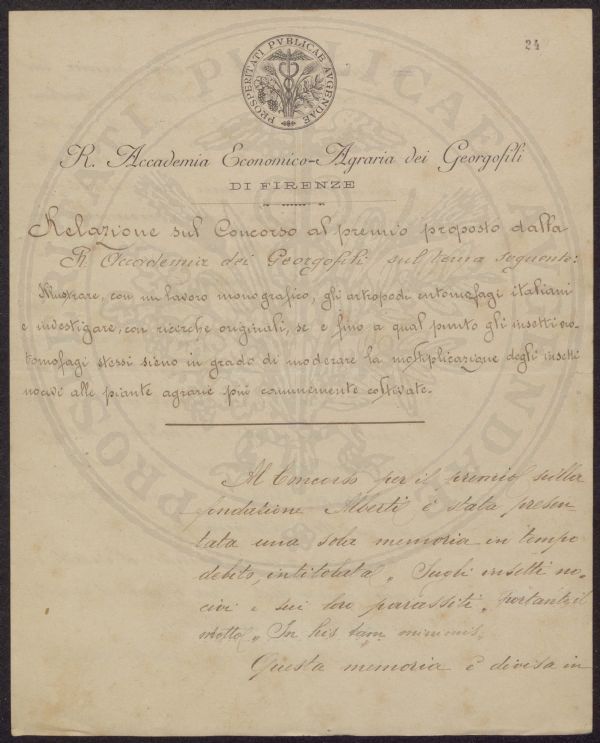 24
PROSPERITATI PVBLICAE AVGENDAE
R. Accademia Economico-Agraria dei Georgofili
DI FIRENZE
Relazione sul Concorso al premio proposto dalla
R. Accademia dei Georgofili sul tema seguente:
Illustrare, con un lavoro monografico, gli artropodi entomofagi italiani
e investigare, con ricerche originali, se e fino a qual punto gli insetti en-
tomofagi stessi sieno in grado di moderare la moltiplicazione degli insetti
nocivi alle piante agrarie più comunemente coltivate.
Al Concorso per il premio sulla
fondazione Alberti è stata presen
tata una sola memoria in tempo
debito, intitolata „ Sugli insetti no-
civi e sui loro parassiti „ portante il
motto „ In his tam minimis.
Questa memoria è divisa in